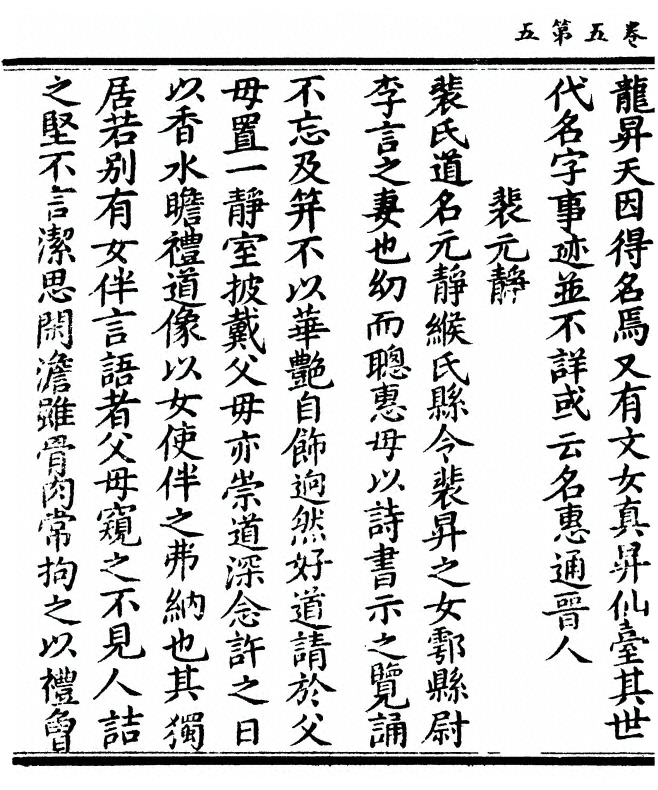 卷五第五
龍昇天因得名焉又有文女真昇仙臺其世
代名字事迹並不詳或云名惠通晉人
裴元靜
裴氏道名元靜緱氏縣令裴昇之女鄠縣尉
李言之妻也幼而聰惠母以詩書示之覽誦
不忘及笄不以華艷自飾逈然好道請於父
母置一靜室披戴父母亦崇道深念許之日
以香水瞻禮道像以女使伴之弗納也其獨
居若別有女伴言語者父母窺之不見人詰
之堅不言潔思閑澹雖骨肉常拘之以禮曾